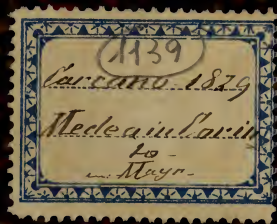 1139
Carcano 1829
Medea in Corin
to
Mayr